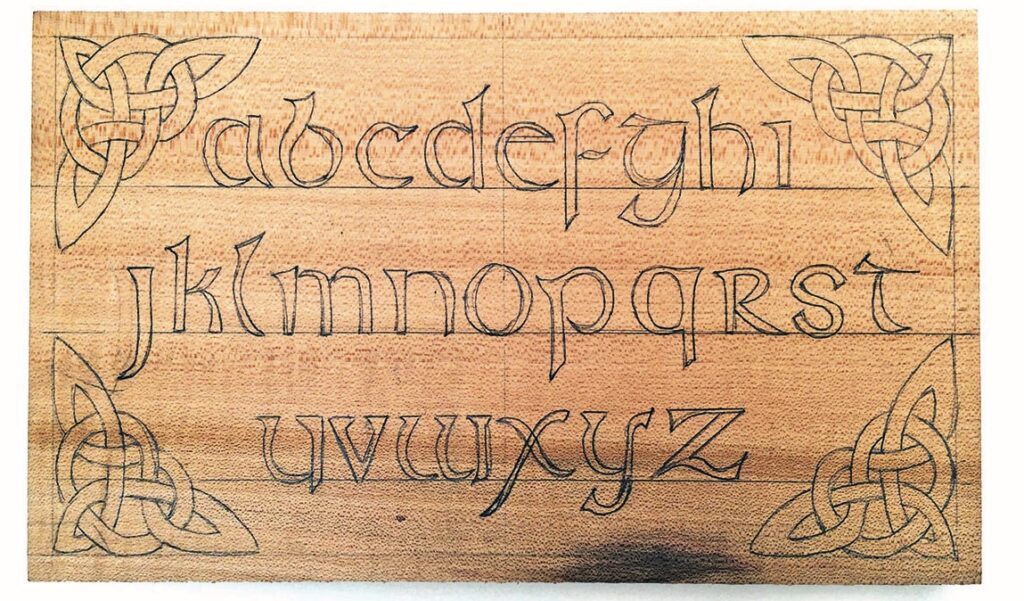 abcdefghi
jklmnopqrst
uvwxyz